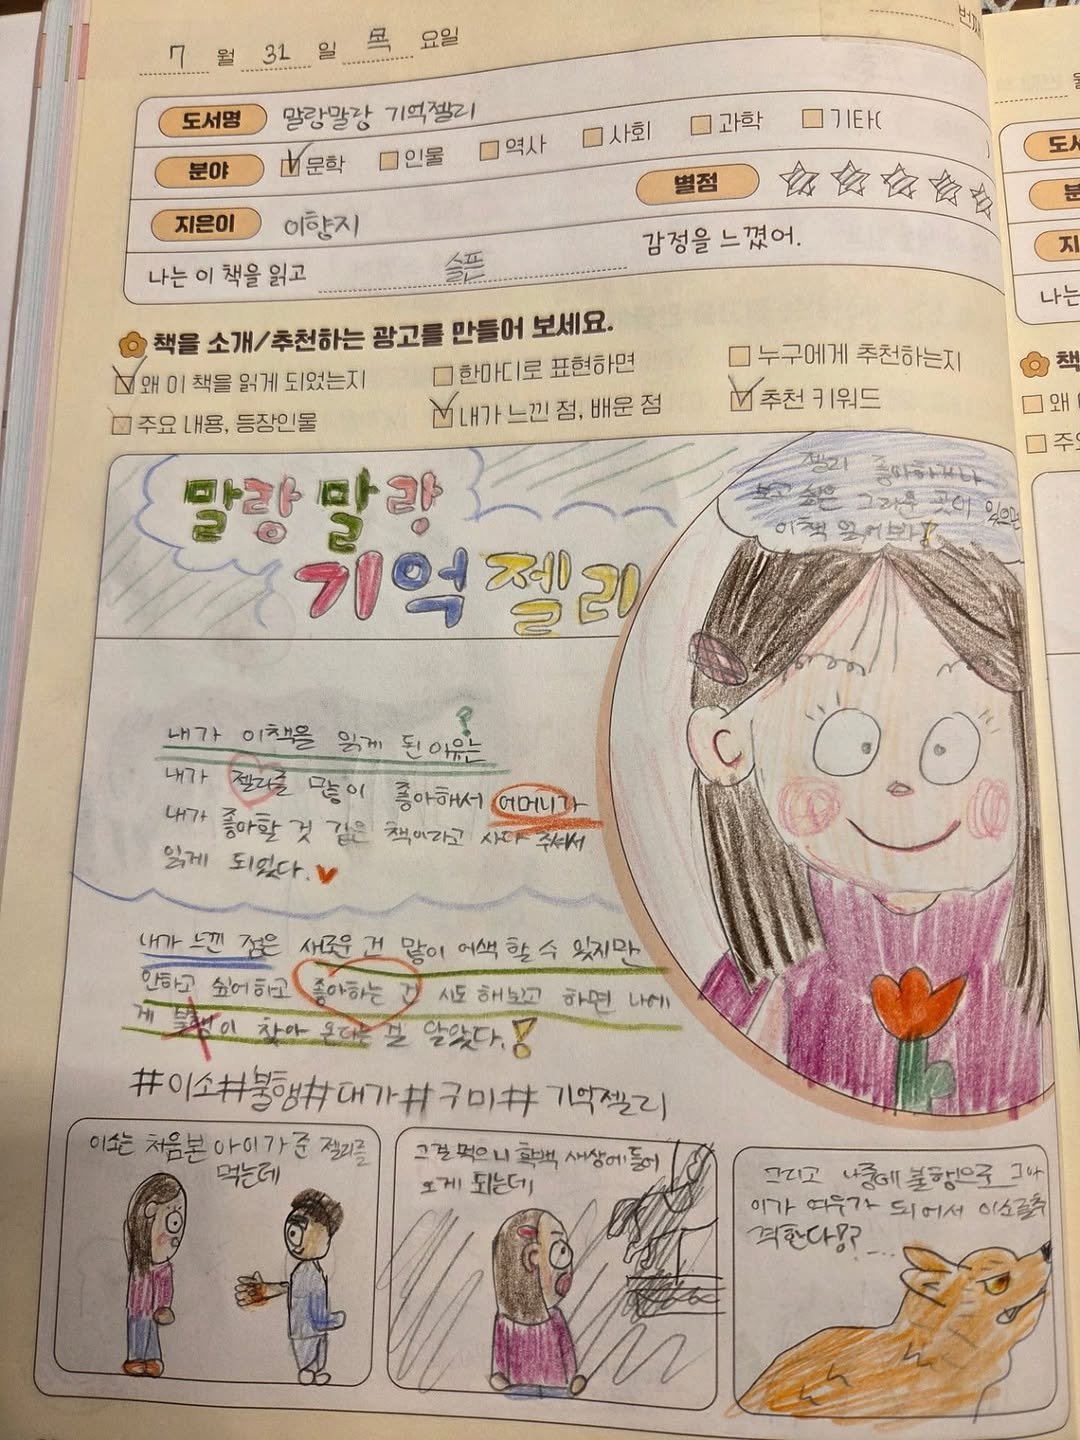 7 월 31 일 목 요일
도서명 말랑말랑 기억젤리
분야 문학 인물 역사 사회 과학 기타(
별점
지은이 이향지
나는 이 책을 읽고 슬픈 감정을 느꼈어.
책을 소개/추천하는 광고를 만들어 보세요.
왜 이 책을 읽게 되었는지 한마디로 표현하면 누구에게 추천하는지
주요 내용, 등장인물 내가 느낀 점, 배운 점 추천 키워드
말랑말랑
기억젤리
젤리 좋아하거나
보고 싶은 그리운 것이 있으면
이책 읽어봐!
내가 이책을 읽게 된 이유는?
내가 젤리를 많이 좋아해서 어머니가
내가 좋아할 것 같은 책이라고 사다 주셔서
읽게 되었다.
내가 느낀 점은 새로운 건 많이 어색 할 수 있지만
안하고 싶어하고 좋아하는 건 시도 해보고 하면 나에
게 불행이 찾아 온다는 걸 알았다.!
#이소#불행#대가#구미#기억젤리
이소는 처음본 아이가 준 젤리를
먹는데
그걸 먹으니 흑백 세상에 들어
오게 되는데
그리고 나중에 불행으로 그아
이가 여우가 되어서 이소를추
격한다!?....
도서
분
지
나는
책
왜
주요